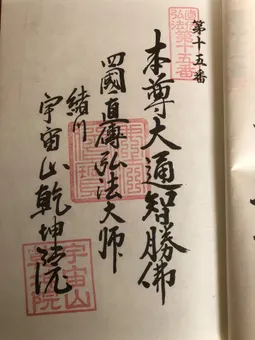 直傳
弘法
第十五番
第十五番
本尊大通智勝佛
四國直傳弘法大師
緒川
宇宙山乾坤院
宇宙山
乾坤院